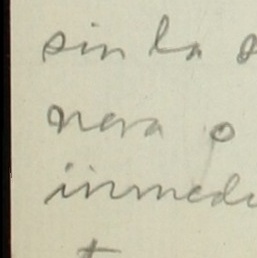 sin la
nera o
inmedi